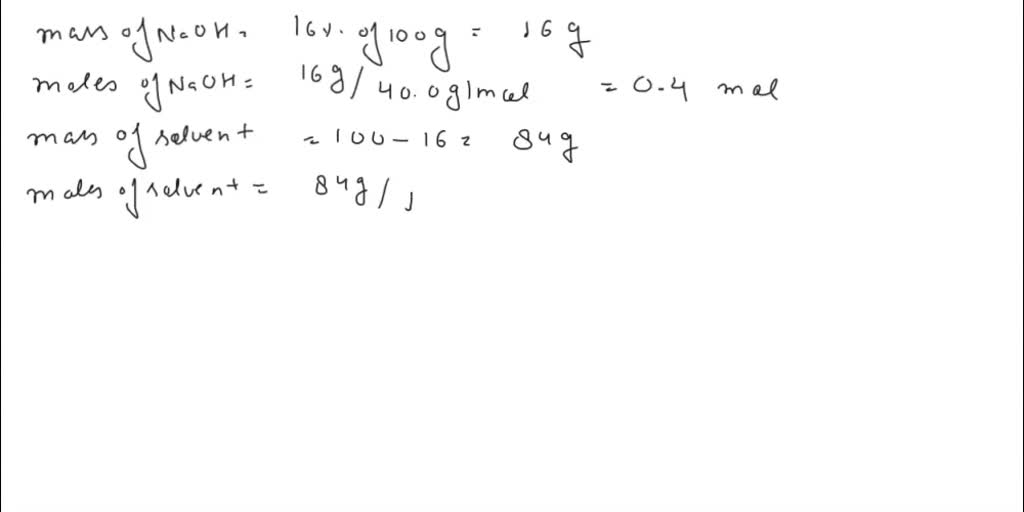 mass of NaOH = 16% of 100g = 16 g
moles of NaOH = 16g / 40.0g/mol = 0.4 mol
mass of solvent = 100 - 16 = 84g
moles of solvent = 84g / 1